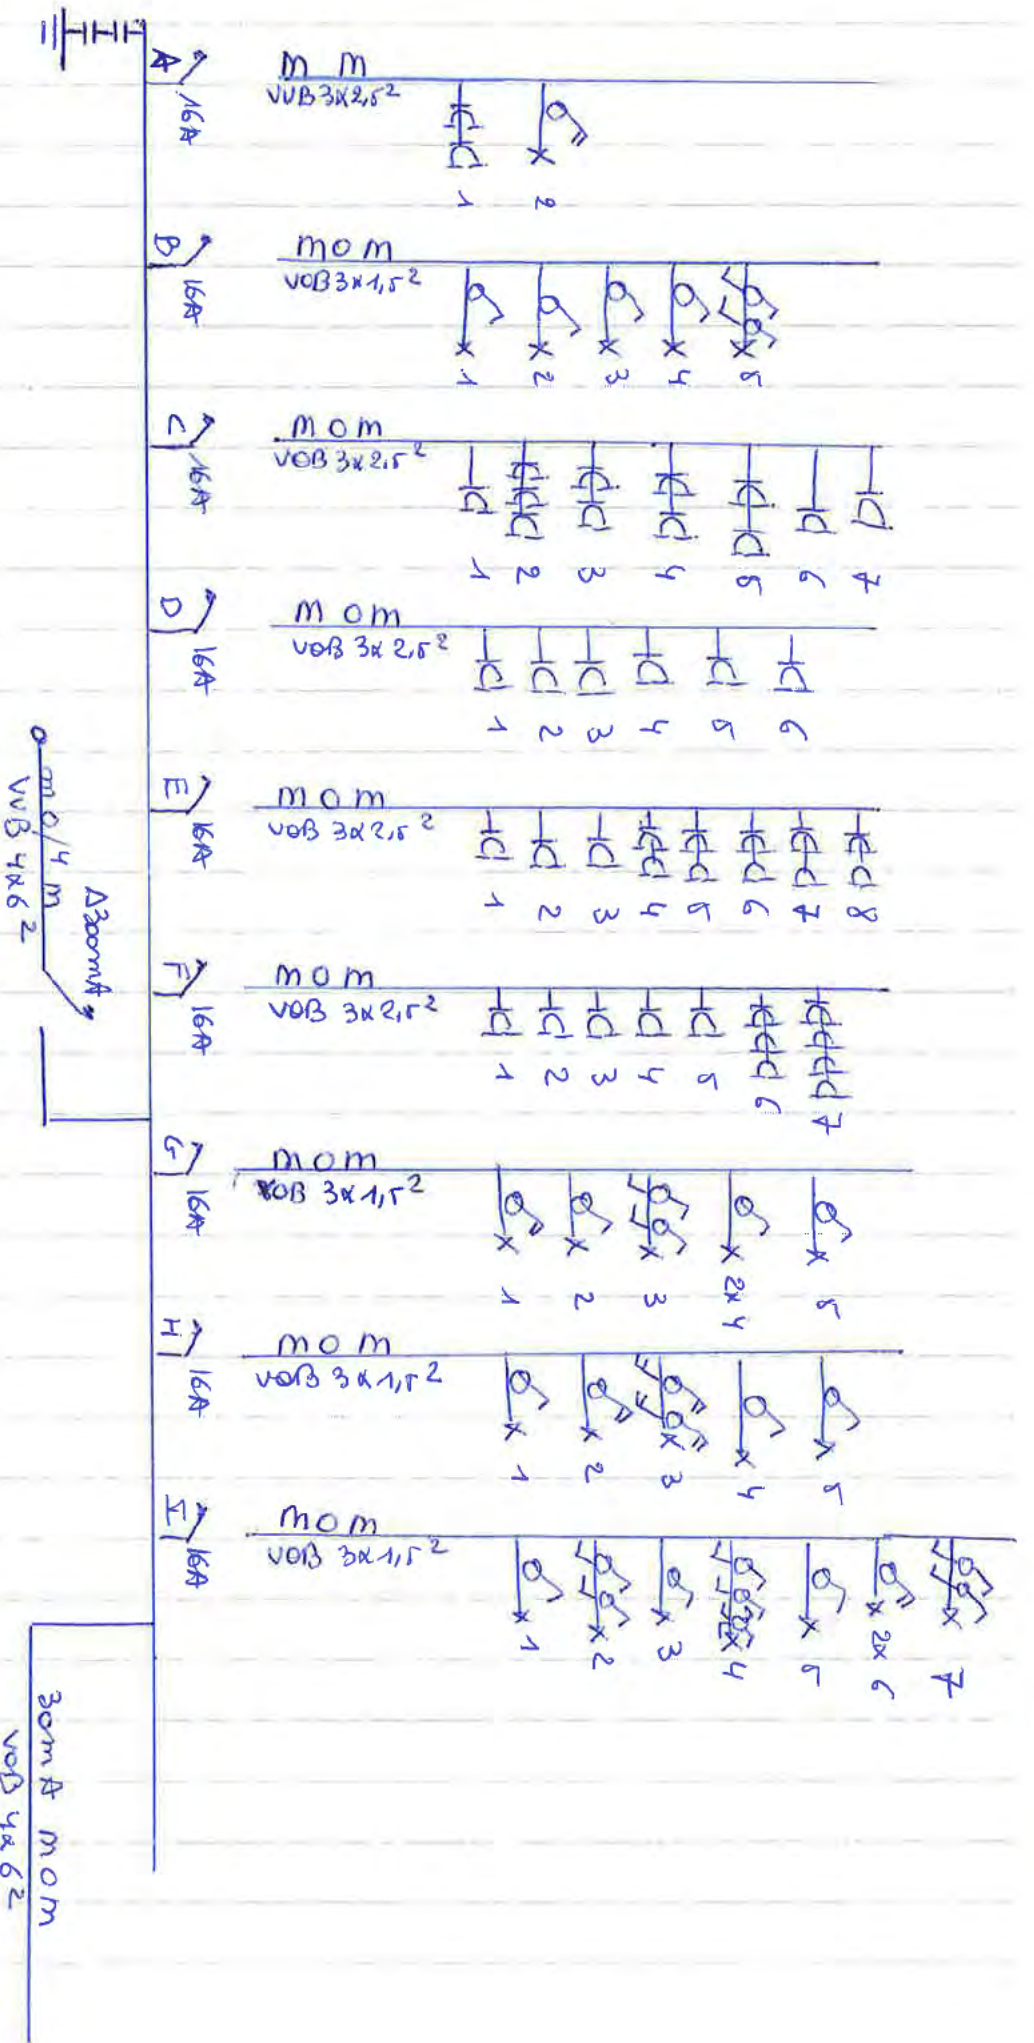 A
16A
m m
VVB 3x2,5²
1 2
B
16A
m o m
VOB 3x1,5²
1 2 3 4 5
C
16A
m o m
VOB 3x2,5²
1 2 3 4 5 6 7
D
16A
m o m
VOB 3x2,5²
1 2 3 4 5 6
E
16A
m o m
VOB 3x2,5²
1 2 3 4 5 6 7 8
m o/4 m
VVB 4x6²
Δ300mA
F
16A
m o m
VOB 3x2,5²
1 2 3 4 5 6 7
G
16A
m o m
VOB 3x1,5²
1 2 3 2x4 5
H
16A
m o m
VOB 3x1,5²
1 2 3 4 5
I
16A
m o m
VOB 3x1,5²
1 2 3 4 5 2x6 7
30mA m o m
VOB 4x6²